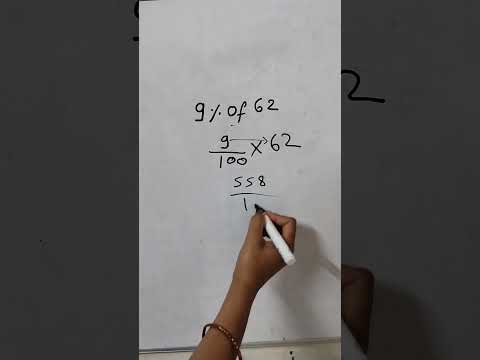 9% of 62
9/100 × 62
558/1